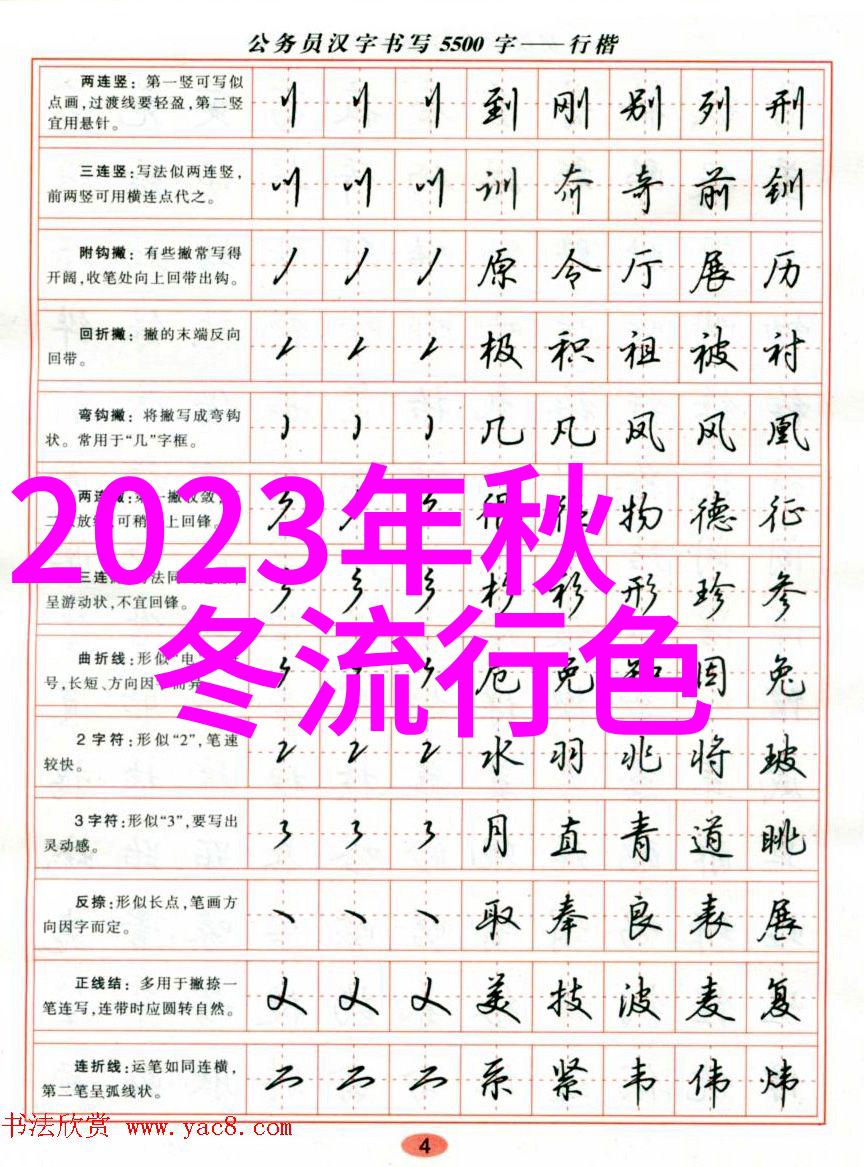 公务员汉字书写 5500 字——行楷
两连竖：第一竖可写似
点画，过渡线要轻盈，第二竖
宜用悬针。
刂 刂 刂 到 刚 别 列 刑
三连竖：写法似两连竖，
前两竖可用横连点代之。
训 奇 前 钏
附钩撇：有些撇常写得
开阔，收笔处向上回带出钩。
原 令 厅 展 历
回折撇：撇的末端反向
回带。
极 积 祖 被 衬
弯钩撇：将撇写成弯钩
状。常用于“几”字框。
几 凡 凤 风 凰
物 德 征
呈游动状，不宜回锋。
杉 衫 形 珍 参
曲折线：形似“电
号，长短、方向因
厄 免 囡 兔
2023年秋
冬流行色
2字符：形似“2”，笔速
较快。
2 2 2 水 羽 兆 将 玻
3字符：形似“3”，要写出
灵动感。
3 3 3 月 直 青 道 眺
反捺：形似长点，笔画方
向因字而定。
取 奉 良 表 展
正线结：多用于撇捺一
笔连写，连带时应圆转自然。
美 技 波 麦 复
连折线：运笔如同连横，
第二笔呈弧线状。
系 紧 韦 伟 炜
书法欣赏 www.yac8.com
4